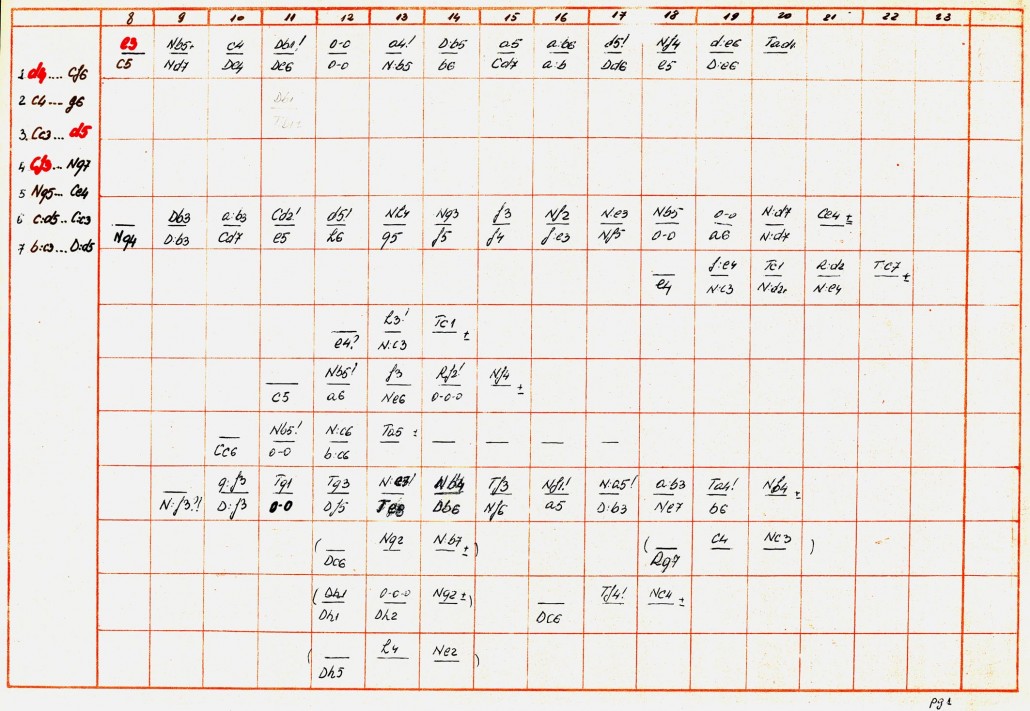 8 9 10 11 12 13 14 15 16 17 18 19 20 21 22 23
e3 Nb5+ c4 Db1! 0-0 a4! D:b5 a5 a:b6 d5! Nf4 d:e6 Tad1
C5 Nd7 Dc4 Dc6 0-0 N:b5 b6 Cd7 a:b Dd6 e5 D:e6
1 d4.... Cf6
2 C4.... g6
3. Cc3... d5
4 Cf3... Ng7
5 Ng5... Ce4
6 C:d5.. C:c3
7 b:c3... D:d5
— Db3 a:b3 Cd2! d5! Nh4 Ng3 f3 Nf2 N:e3 Nb5 0-0 N:d7 Ce4 ±
Ng4 D:b3 Cd7 e5 h6 g5 f5 f4 f:e3 Nf5 0-0 a6 N:d7
— f:e4 Tc1 R:d2 T:c7 ±
e4 N:c3 N:d2+ N:e4
— h3! Tc1 ±
e4? N:c3
— Nb5! f3 Rf2! Nf4 ±
C5 a6 Ne6 0-0-0
— Nb5! N:c6 Ta5 ± — — — —
Cc6 0-0 b:c6
— g:f3 Tg1 Tg3 N:e7! Nb4 Tf3 Nf1! N:a5! a:b3 Ta4! Nb4 ±
N:f3?! D:f3 0-0 Df5 Te8 Db6 Nf6 a5 D:b3 Ne7 b6
( — Ng2 N:b7 ± ) ( — C4 Nc3 )
Dc6 Rg7
( Dh1 0-0-0 Ng2 ± ) — Tf4! Nc4 ±
Dh1 Dh2 Dc6
( — h4 Ne2 )
Dh5
pg 1